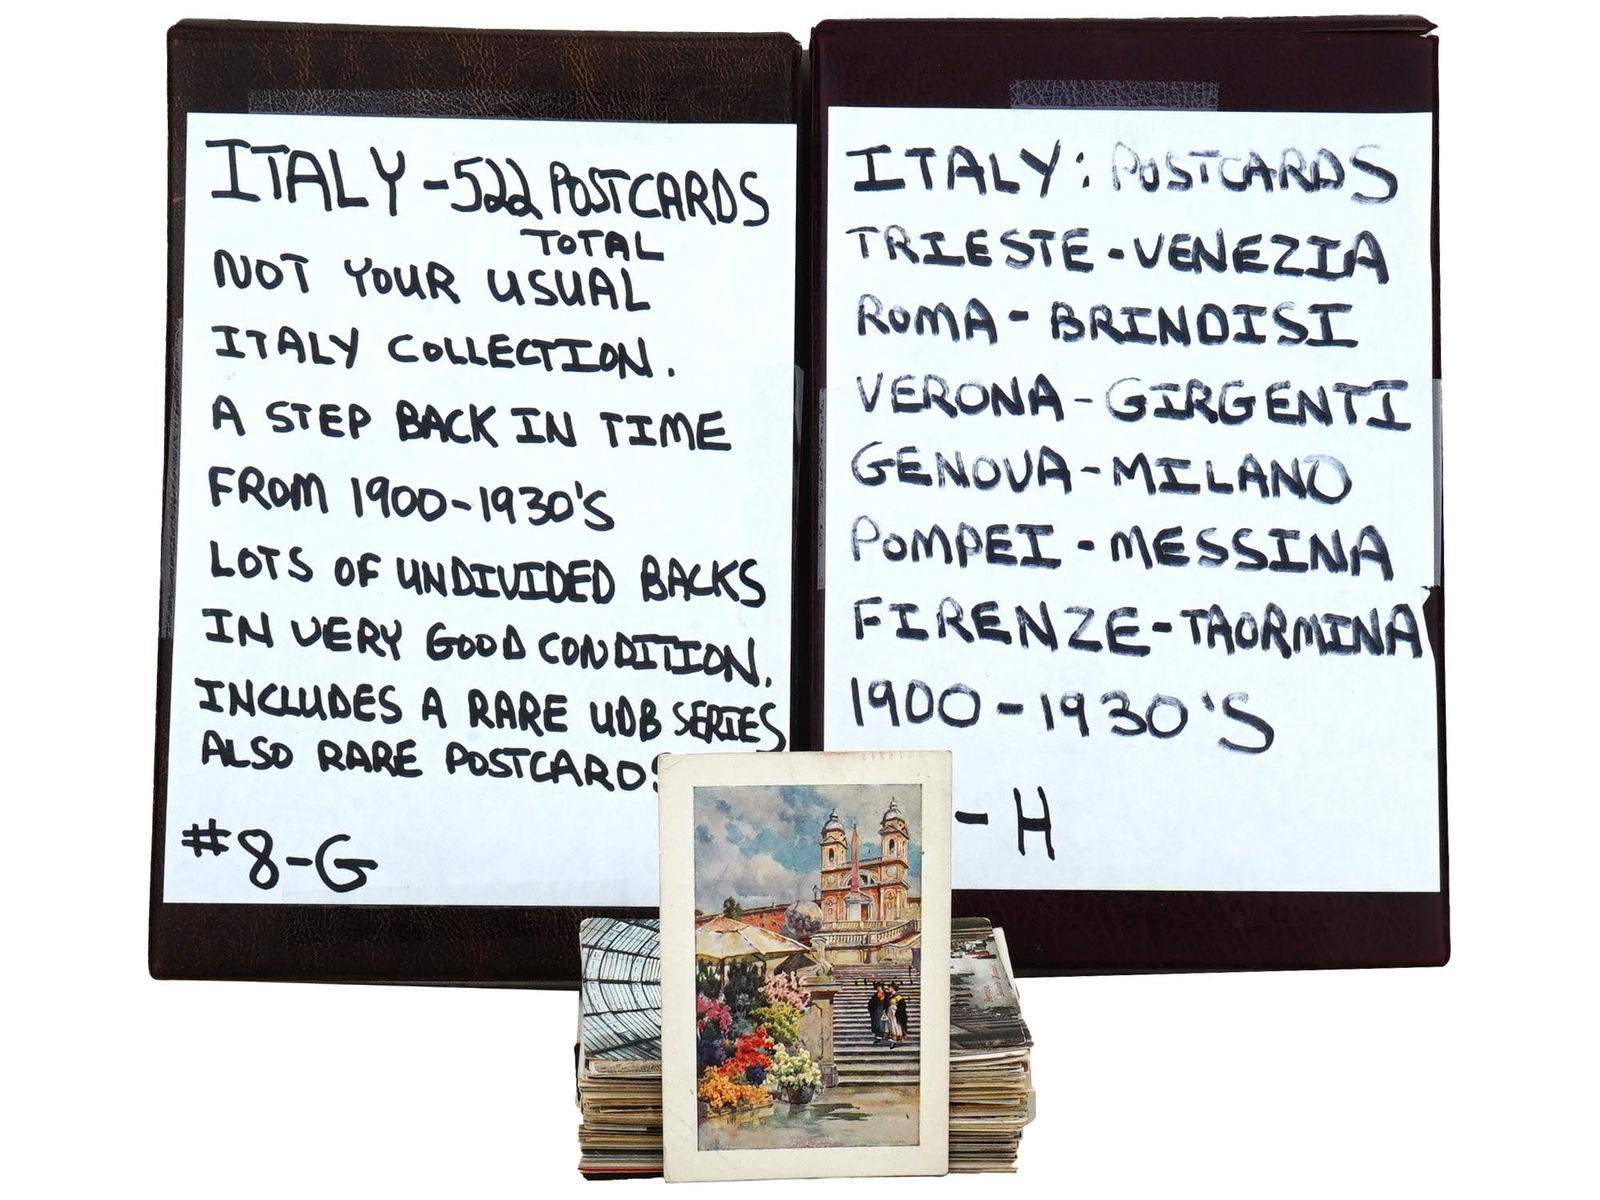 ITALY - 522 POSTCARDS
TOTAL
NOT YOUR USUAL
ITALY COLLECTION.
A STEP BACK IN TIME
FROM 1900-1930'S
LOTS OF UNDIVIDED BACKS
IN VERY GOOD CONDITION.
INCLUDES A RARE UDB SERIES
ALSO RARE POSTCARDS
#8-G
ITALY: POSTCARDS
TRIESTE-VENEZIA
ROMA-BRINDISI
VERONA-GIRGENTI
GENOVA-MILANO
POMPEI-MESSINA
FIRENZE-TAORMINA
1900-1930'S
-H